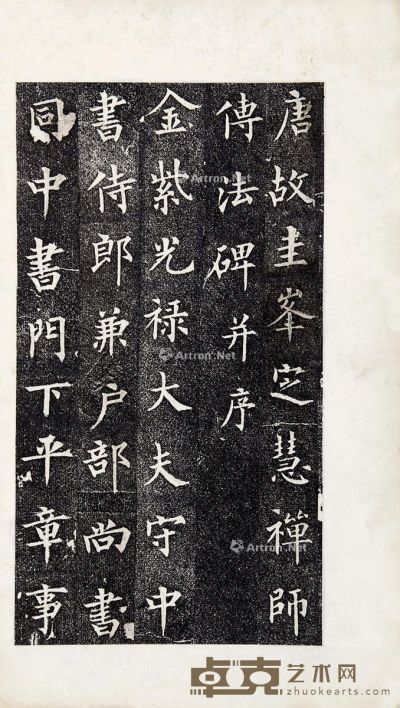 唐故圭峯定慧禪師
傳法碑并序
金紫光禄大夫守中
書侍郎兼户部尚書
同中書門下平章事
Artron.Net
Artron.Net
Artron.Net
卓克艺术网
zhuokearts.com